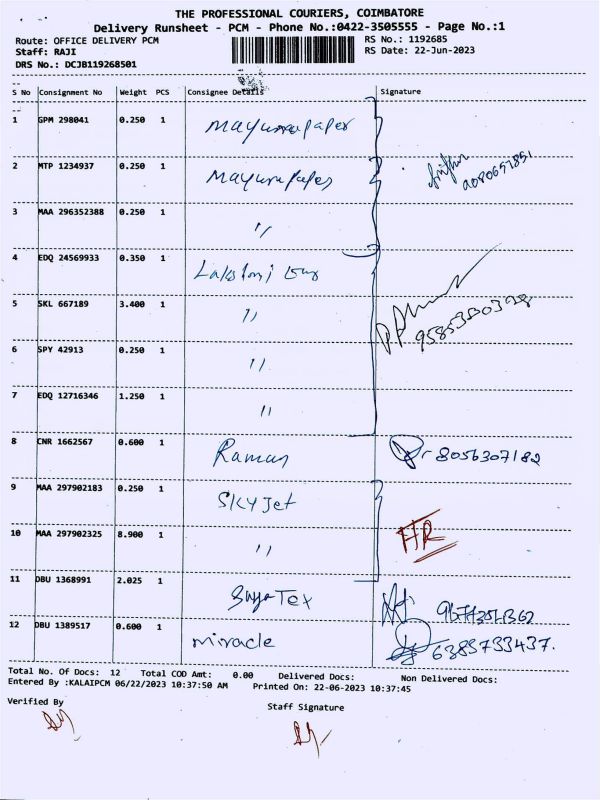 THE PROFESSIONAL COURIERS, COIMBATORE
Delivery Runsheet - PCM - Phone No.:0422-3505555 - Page No.:1
Route: OFFICE DELIVERY PCM RS No.: 1192685
Staff: RAJI RS Date: 22-Jun-2023
DRS No.: DCJB119268501
S No Consignment No Weight PCS Consignee Details Signature
1 GPM 298041 0.250 1 Mayurapaper
2 MTP 1234937 0.250 1 Mayurapaper
3 MAA 296352388 0.250 1 "
4 EDQ 24569933 0.350 1 Lakshmi
5 SKL 667189 3.400 1 "
6 SPY 42913 0.250 1 "
7 EDQ 12716346 1.250 1 "
8 CNR 1662567 0.600 1 Raman 8056307182
9 MAA 297902183 0.250 1 Skyjet
10 MAA 297902325 8.900 1 "
11 DBU 1368991 2.025 1 Tex
12 DBU 1389517 0.600 1 miracle 6385733437.
Total No. Of Docs: 12 Total COD Amt: 0.00 Delivered Docs: Non Delivered Docs:
Entered By :KALAIPCM 06/22/2023 10:37:50 AM Printed On: 22-06-2023 10:37:45
Verified By Staff Signature